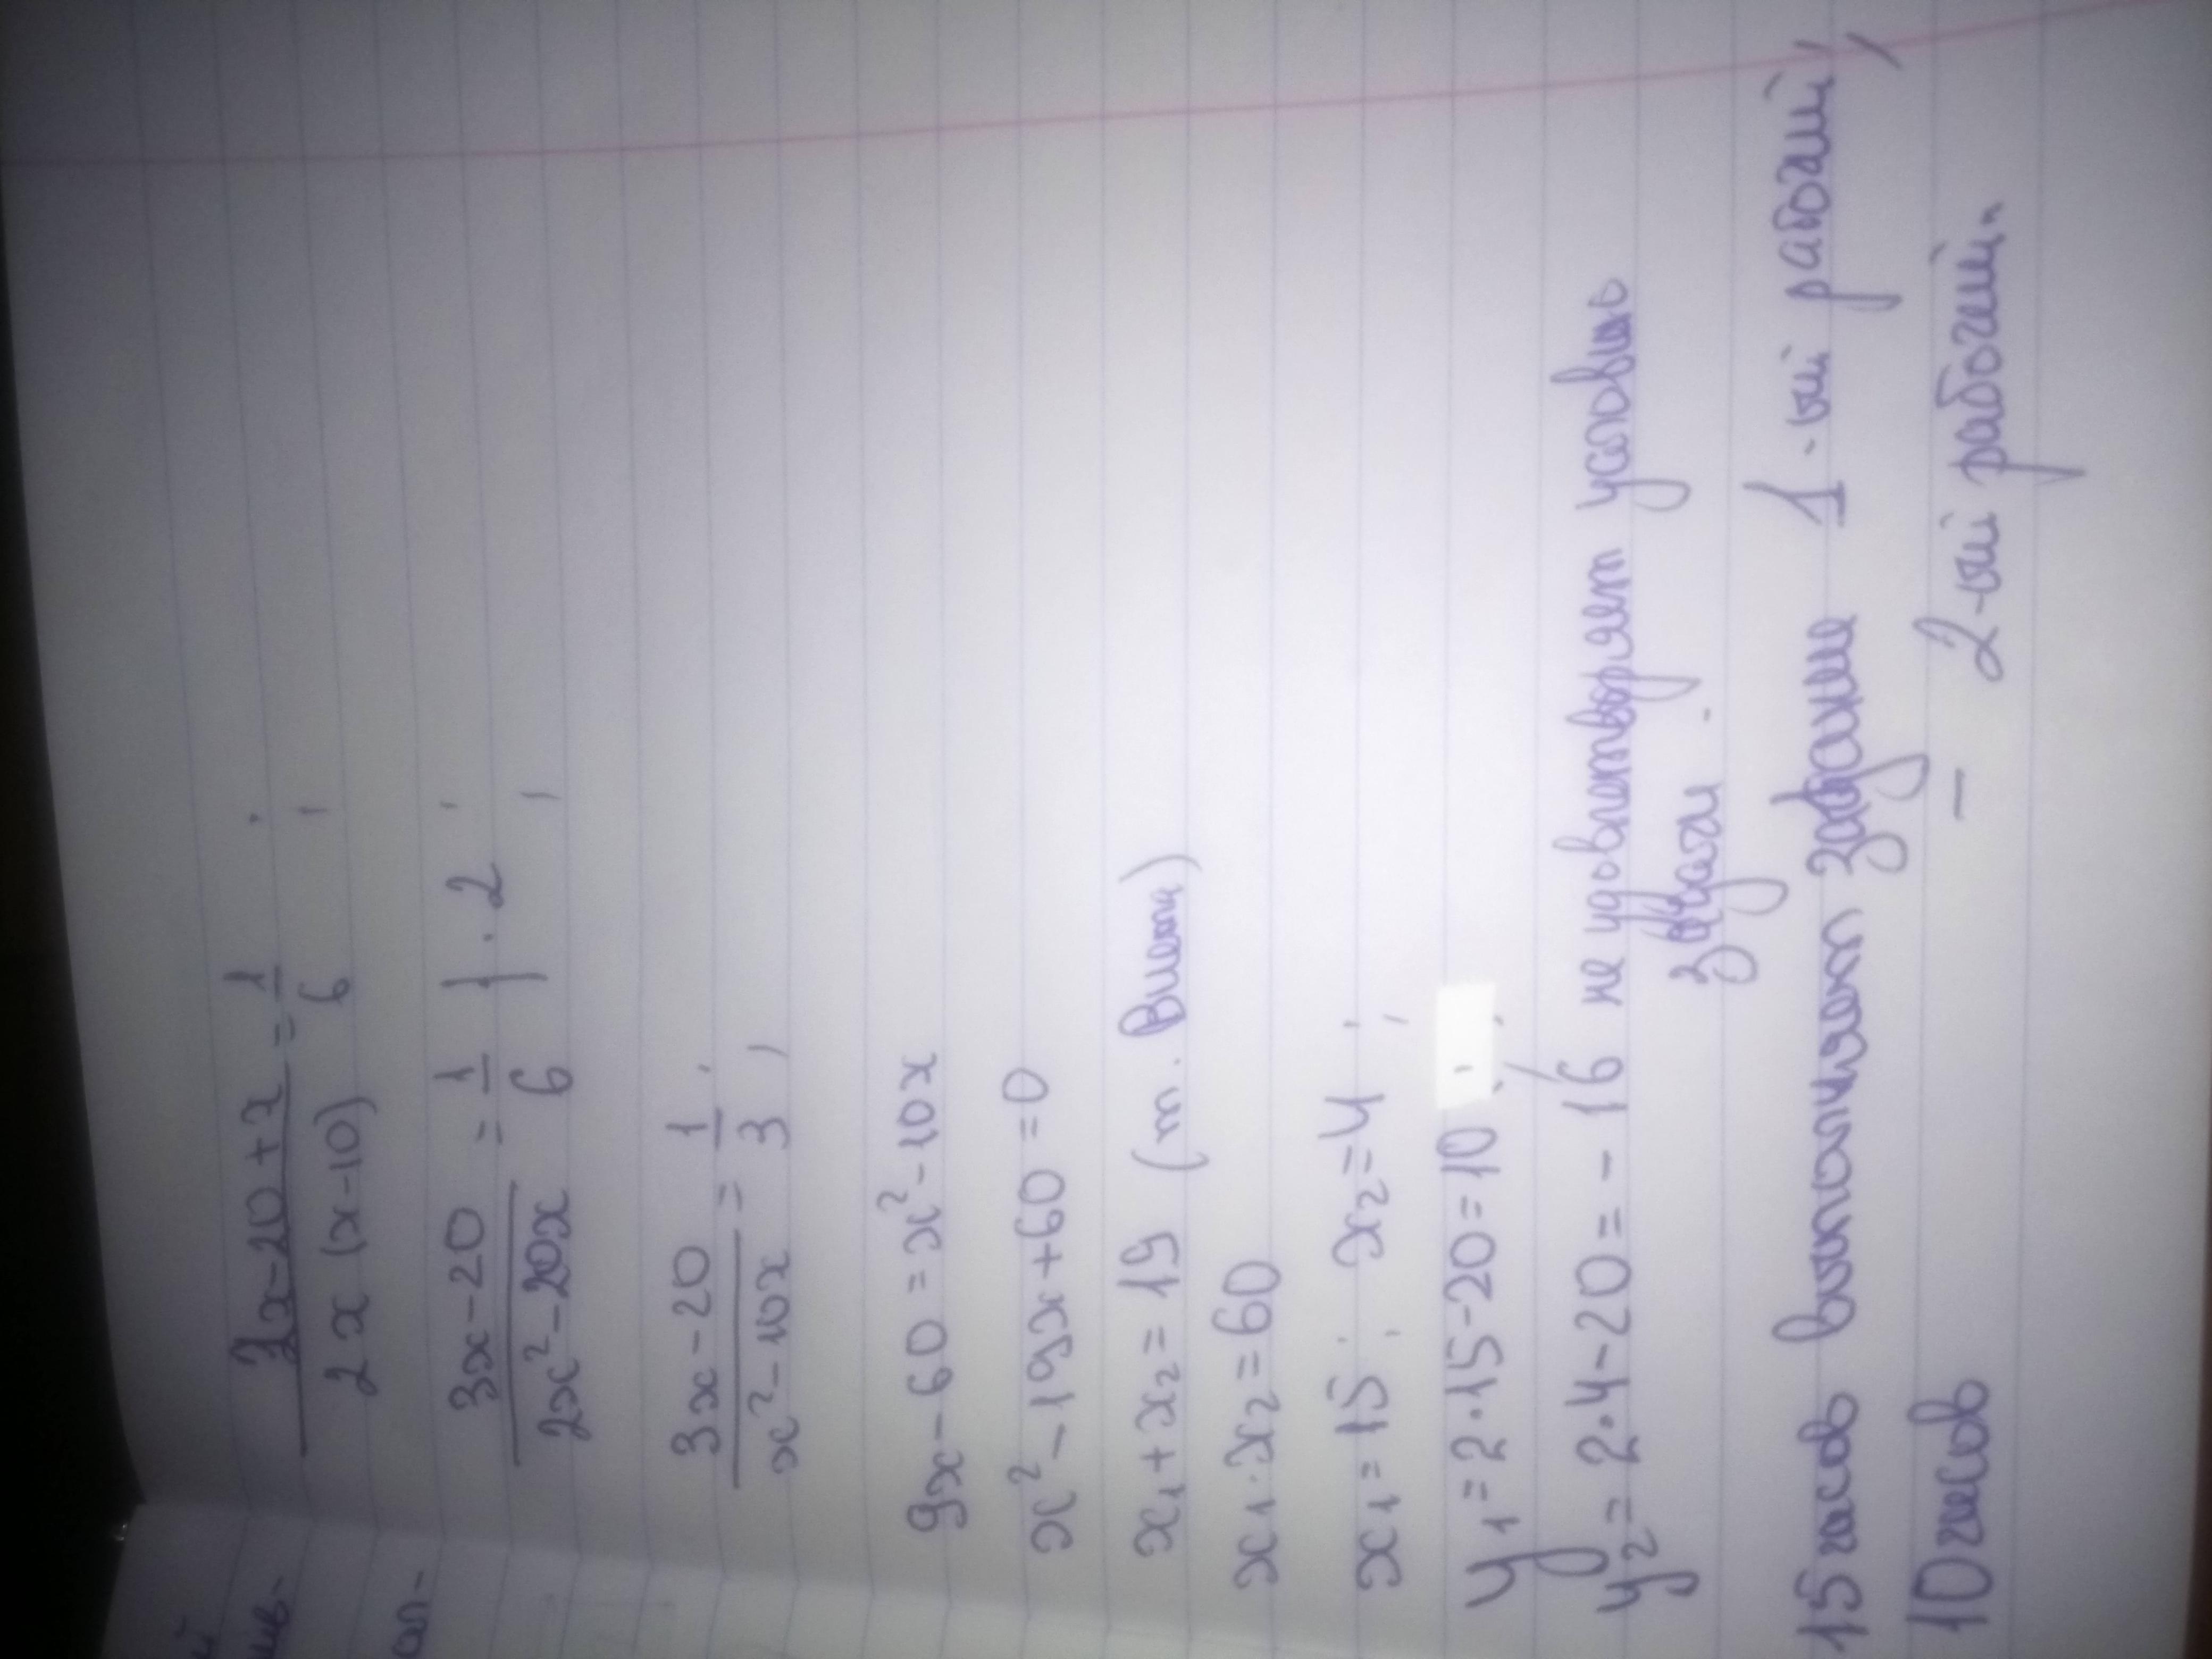 й
ив-
ол-
2x-20+x/2x(x-10) = 1/6 ;
3x-20/2x²-20x = 1/6 | · 2 ;
3x-20/x²-10x = 1/3 ;
9x-60=x²-10x
x²-19x+60=0
x₁+x₂=19 (т. Виета)
x₁·x₂=60
x₁=15 ; x₂=4 ;
y₁=2·15-20=10 ;
y₂=2·4-20=-16 не удовлетворяет условию
задачи.
15 часов выполняет задание 1-ый рабочий,
10 часов — 2-ый рабочий.